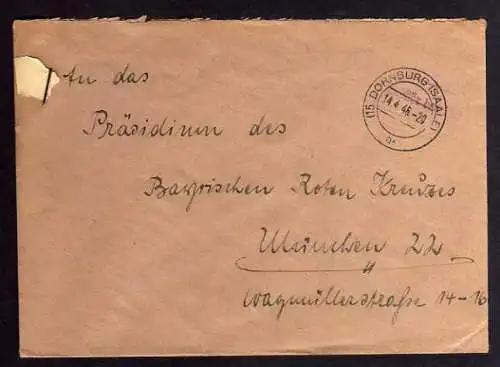 An das
(15) DORNBURG (SAALE)
14.4.46.-20
a
Präsidium des
Bayrischen Roten Kreuzes
München 22
Wagmüllerstraße 14-16